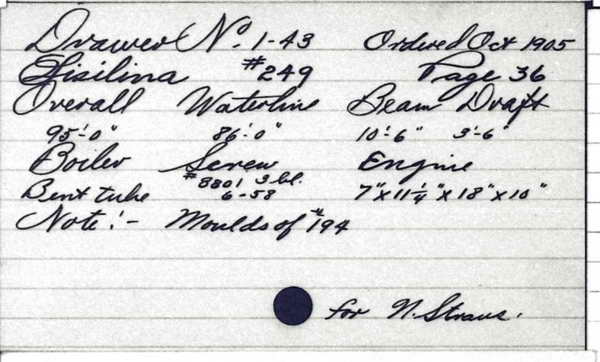 Drawer No. 1-43 Ordered Oct 1905
Sisilina #249 Page 36
Overall Waterline Beam Draft
95'-0" 86'-0" 10'-6" 3'-6"
Boiler Screw Engine
#8801 3-bl.
Bent tube 6-58 7"x11¼"x18"x10"
Note:- Moulds of #194
for N. Straus.